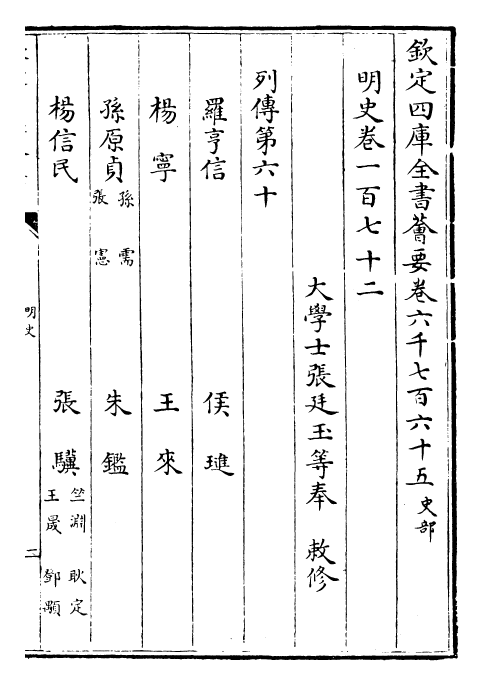 欽定四庫全書薈要卷六千七百六十五 史部
明史卷一百七十二
大學士張廷玉等奉 敕修
列傳第六十
羅亨信 侯璡
楊寧 王來
孫原貞 孫需 張憲 朱鑑
楊信民 張驥 竺淵 耿定 王晟 鄧顒
明史 二